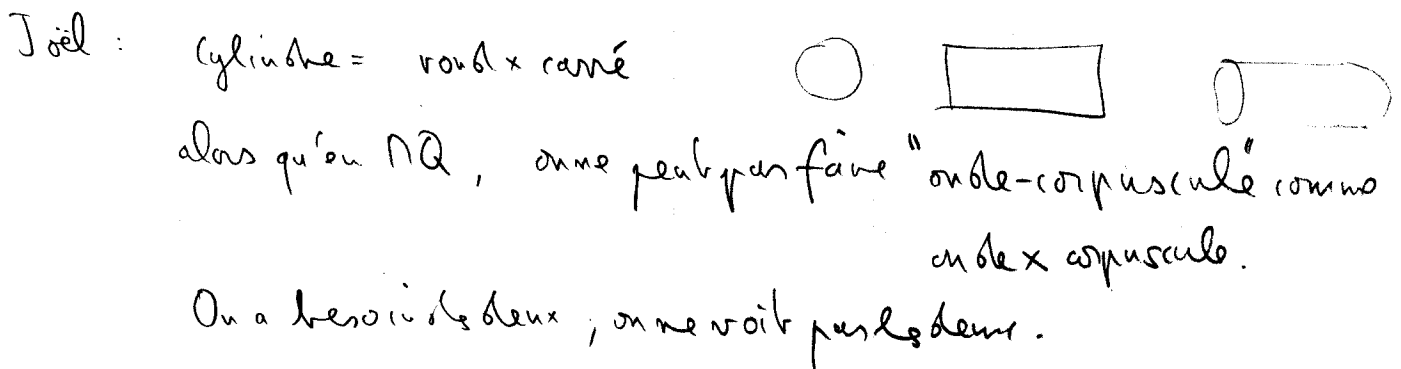 Joël : Cylindre = rond × carré
alors qu'en MQ, on ne peut pas faire "onde-corpuscule" comme
onde × corpuscule.
On a besoin des deux, on ne voit pas les deux.